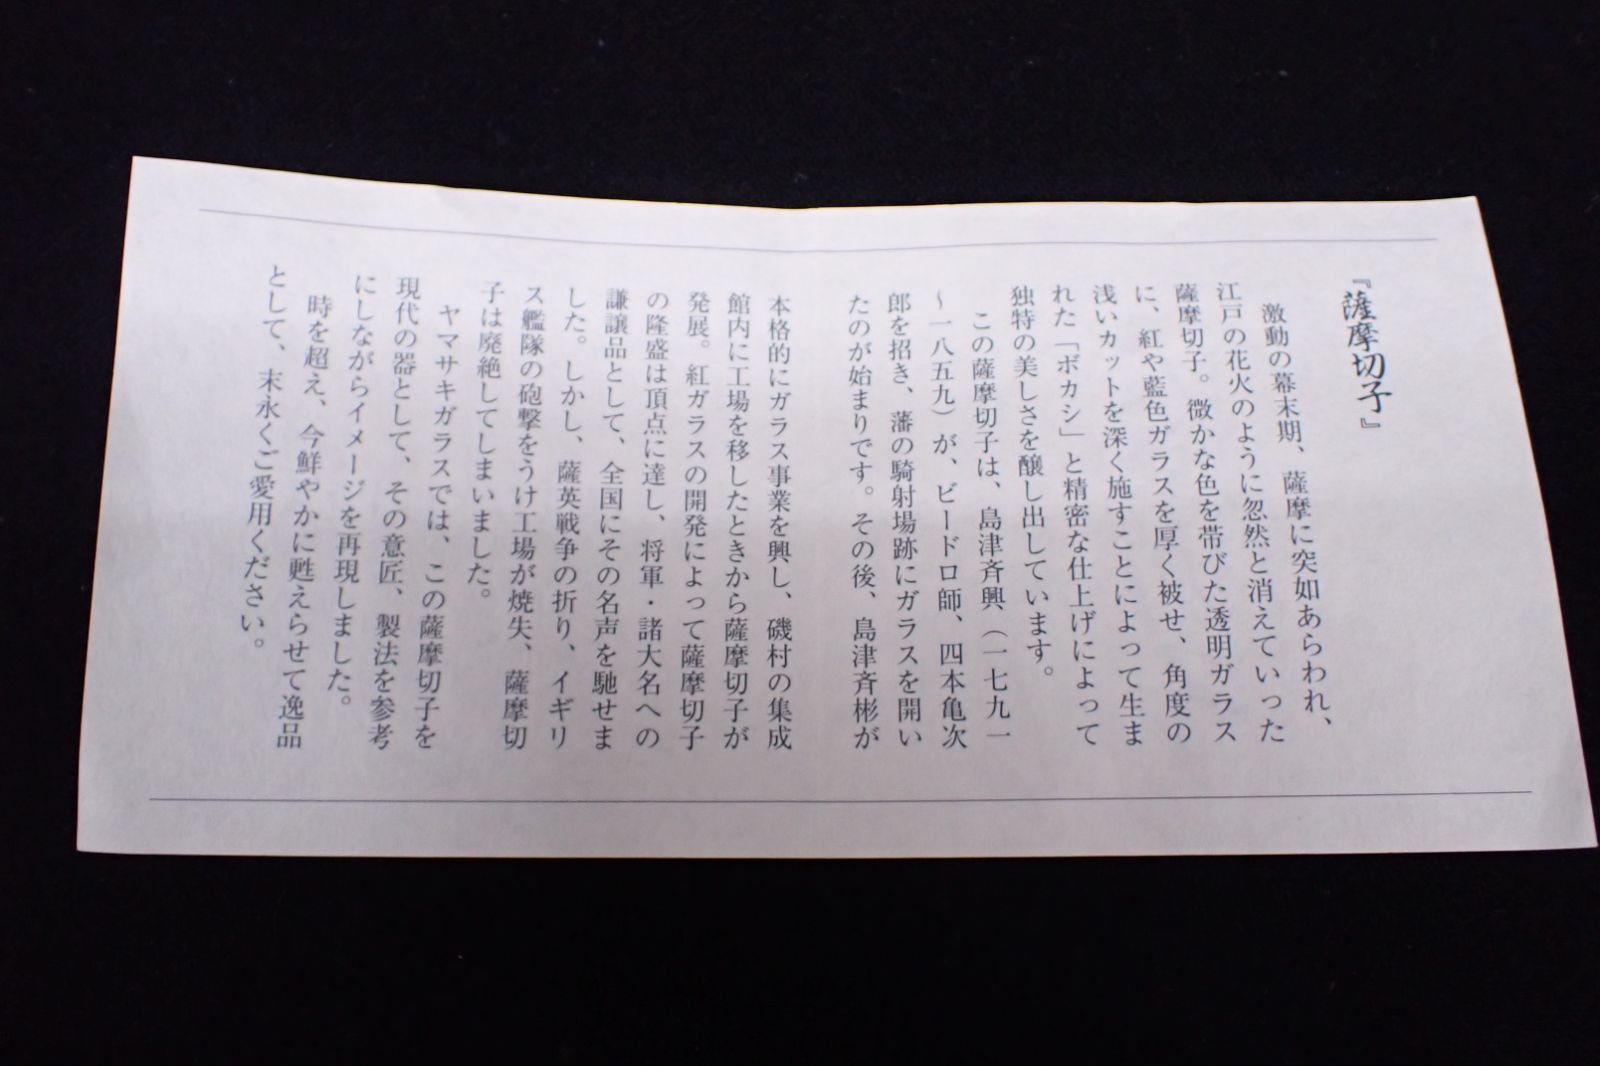 『薩摩切子』
激動の幕末期、薩摩に突如あらわれ、
江戸の花火のように忽然と消えていった
薩摩切子。微かな色を帯びた透明ガラス
に、紅や藍色ガラスを厚く被せ、角度の
浅いカットを深く施すことによって生ま
れた「ボカシ」と精密な仕上げによって
独特の美しさを醸し出しています。
この薩摩切子は、島津斉興（一七九一
～一八五九）が、ビードロ師、四本亀次
郎を招き、藩の騎射場跡にガラスを開い
たのが始まりです。その後、島津斉彬が
本格的にガラス事業を興し、磯村の集成
館内に工場を移したときから薩摩切子が
発展。紅ガラスの開発によって薩摩切子
の隆盛は頂点に達し、将軍・諸大名への
謙譲品として、全国にその名声を馳せま
した。しかし、薩英戦争の折り、イギリ
ス艦隊の砲撃をうけ工場が焼失、薩摩切
子は廃絶してしまいました。
ヤマサキガラスでは、この薩摩切子を
現代の器として、その意匠、製法を参考
にしながらイメージを再現しました。
時を超え、今鮮やかに甦えらせて逸品
として、末永くご愛用ください。